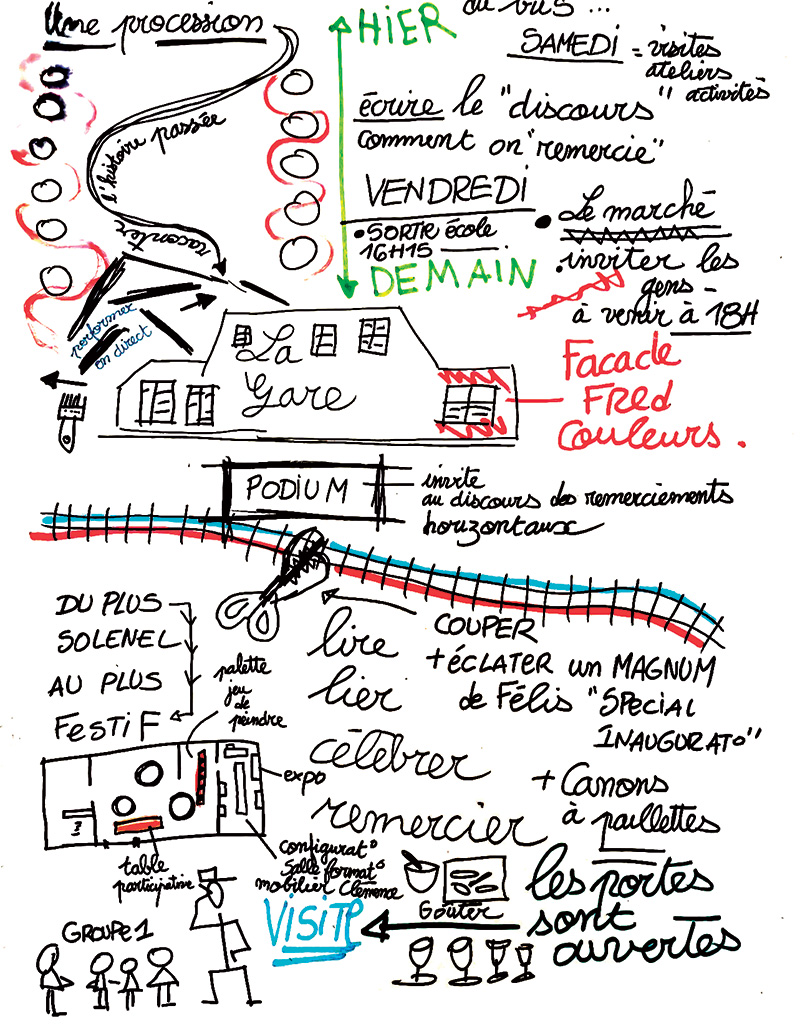 Une procession
l'histoire passée
raconter
performer
en direct
HIER
DEMAIN
SAMEDI = visites
ateliers
activités
écrire le "discours"
comment on "remercie"
VENDREDI
• SORTIR école
16H15
• Le marché
• inviter les
gens -
à venir à 18H
La
Gare
Facade
FREd
Couleurs.
PODIUM
invite
au discours des remerciements
horizontaux
DU PLUS
SOLENEL
AU PLUS
FESTIF
COUPER
+ ÉCLATER un MAGNUM
de Félis "SPECIAL
INAUGURAT°"
+ Canons
à paillettes
lire
lier
célébrer
remercier
palette
jeu
de
peindre
expo
table
participative
configurat°
Salle format°
mobilier Clémence
Goûter
les portes
sont
ouvertes
VISITE
GROUPE 1